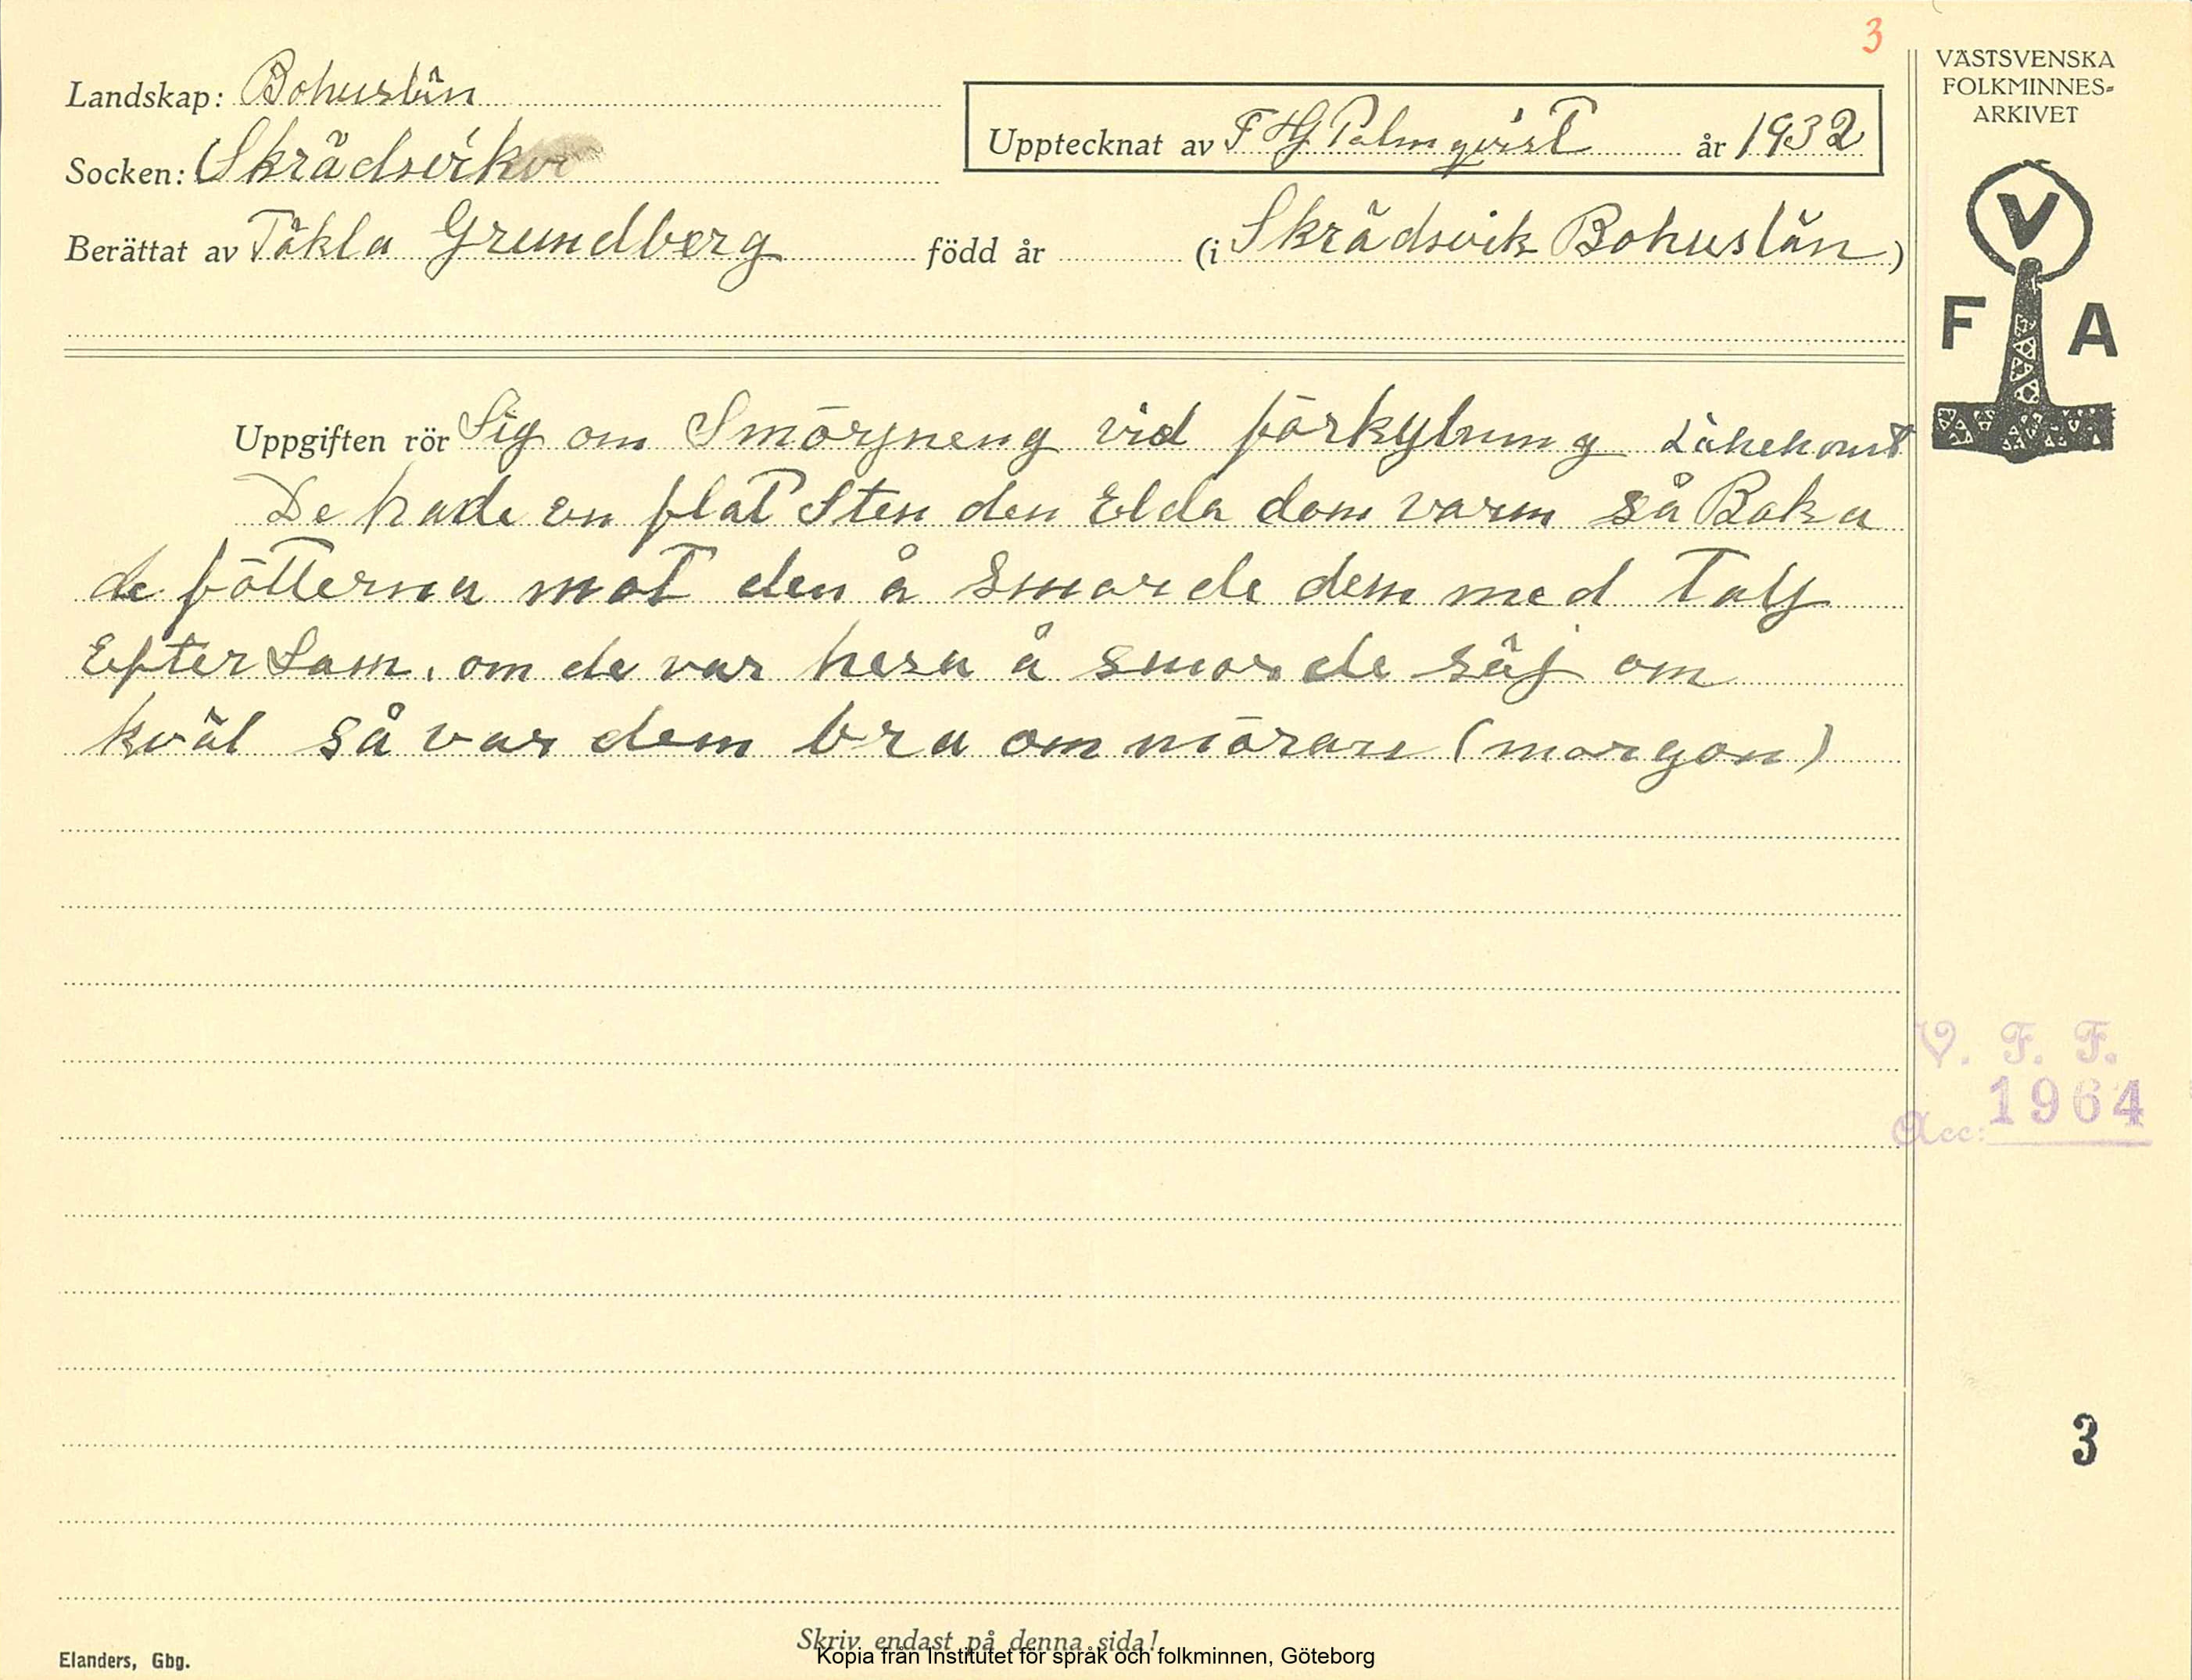 3
Landskap: Bohuslän
VÄSTSVENSKA
FOLKMINNES-
ARKIVET
Upptecknat av F HG Palmqvist år 1932
Socken: Skrädsvik
Berättat av Täkla Grundberg född år (i Skrädsvik Bohuslän)
V
F A
Uppgiften rör Sig om Smörjneng vid förkylning Läkekonst
De hade en flat Sten den Elda dom varm så Baka
de fötterna mot den å Smorde dem med Talj
Efter Som, om de var hesa å smorde säj om
kväl så var dem bra om mören (morgon)
V. F. F.
Acc: 1964
3
Skriv endast på denna sida!
Kopia från Institutet för språk och folkminnen, Göteborg
Elanders, Gbg.